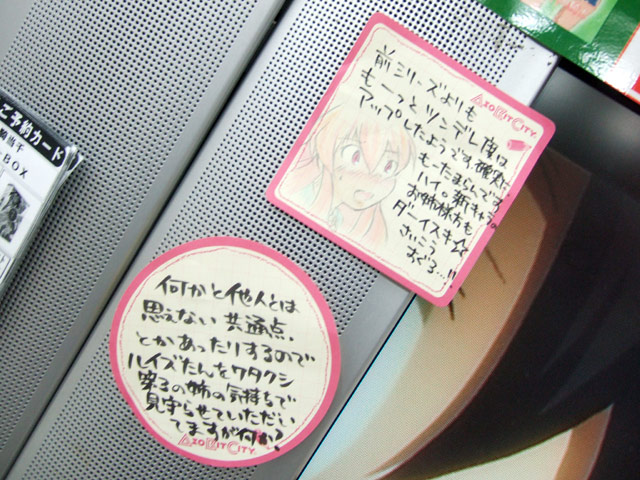 前シリーズよりも
もーっとツンデレ度は
アップしたようです。確実に
もーたまらんです
ハイ。新キャラの
お姉様方も
ダーイスキ☆
さいこう
すぐる…!!
AZO BIT CITY.
何かと他人とは
思えない共通点、
とかあったりするので
ルイズたんをワタクシ
実の姉の気持ちで
見守らせていただい
てますが何か?
AZO BIT CITY.
ご予約カード
BOX